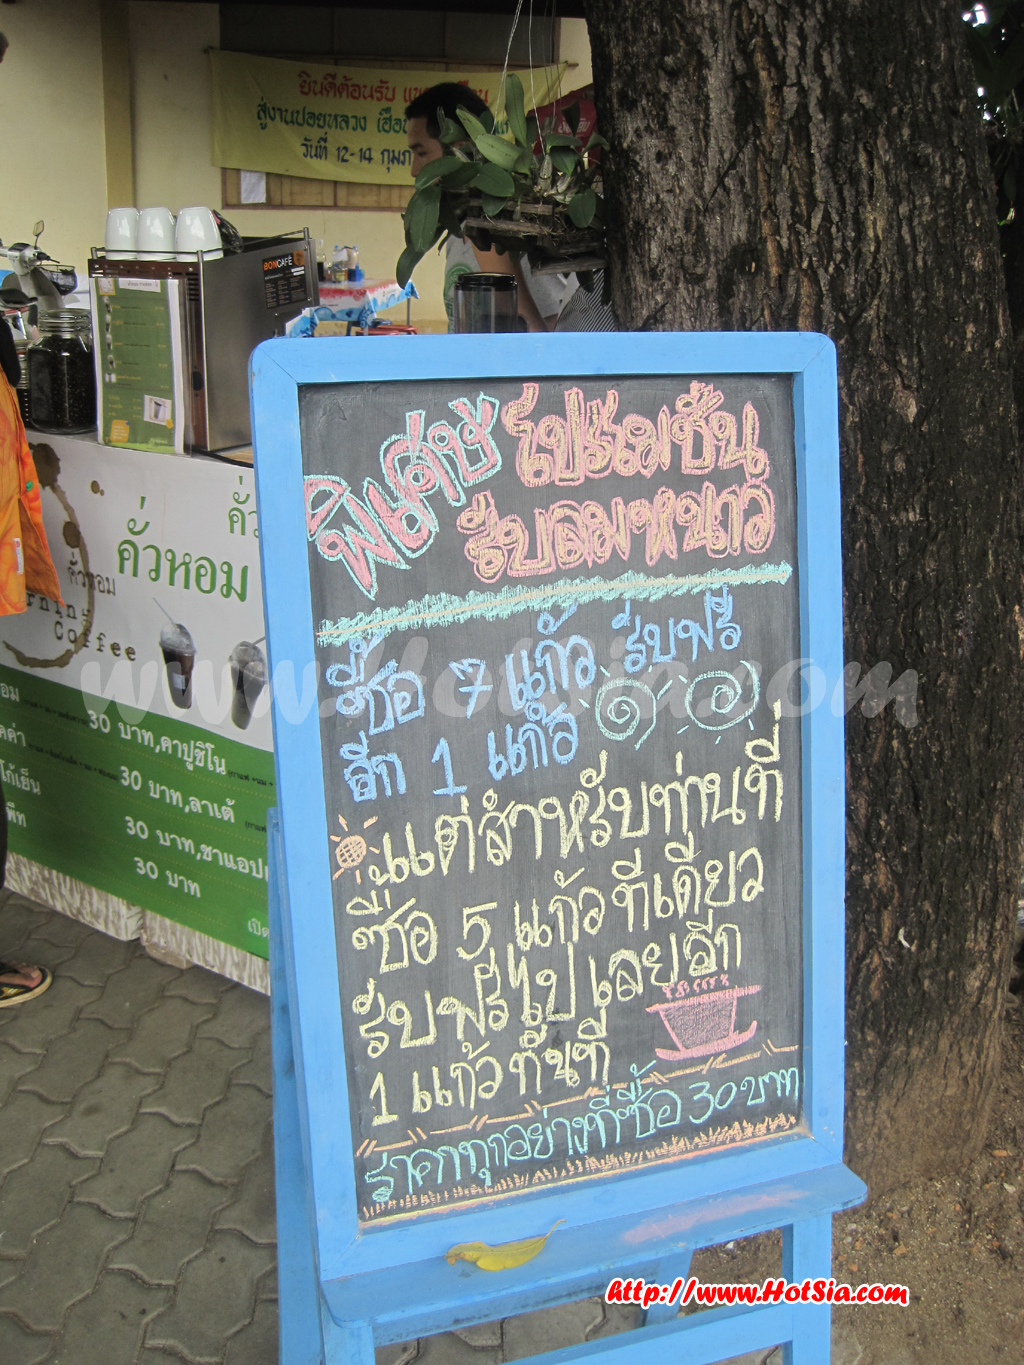 ยินดีต้อนรับ
สู่งานปอยหลวง
วันที่ 12-14
BONCAFÉ
คั่วหอม
คั่วหอม
Coffee
30 บาท,คาปูชิโน
30 บาท,ลาเต้
30 บาท,ชาแอปเ
30 บาท
พิเศษ โปรโมชั่น
รับลมหนาว
ซื้อ 7 แก้ว รับฟรี
อีก 1 แก้ว
แต่สำหรับท่านที่
ซื้อ 5 แก้วทีเดียว
รับฟรีไปเลยอีก
1 แก้วทันที
ราคาทุกอย่างที่ซื้อ 30 บาท
www.HotSia.com
http://www.HotSia.com